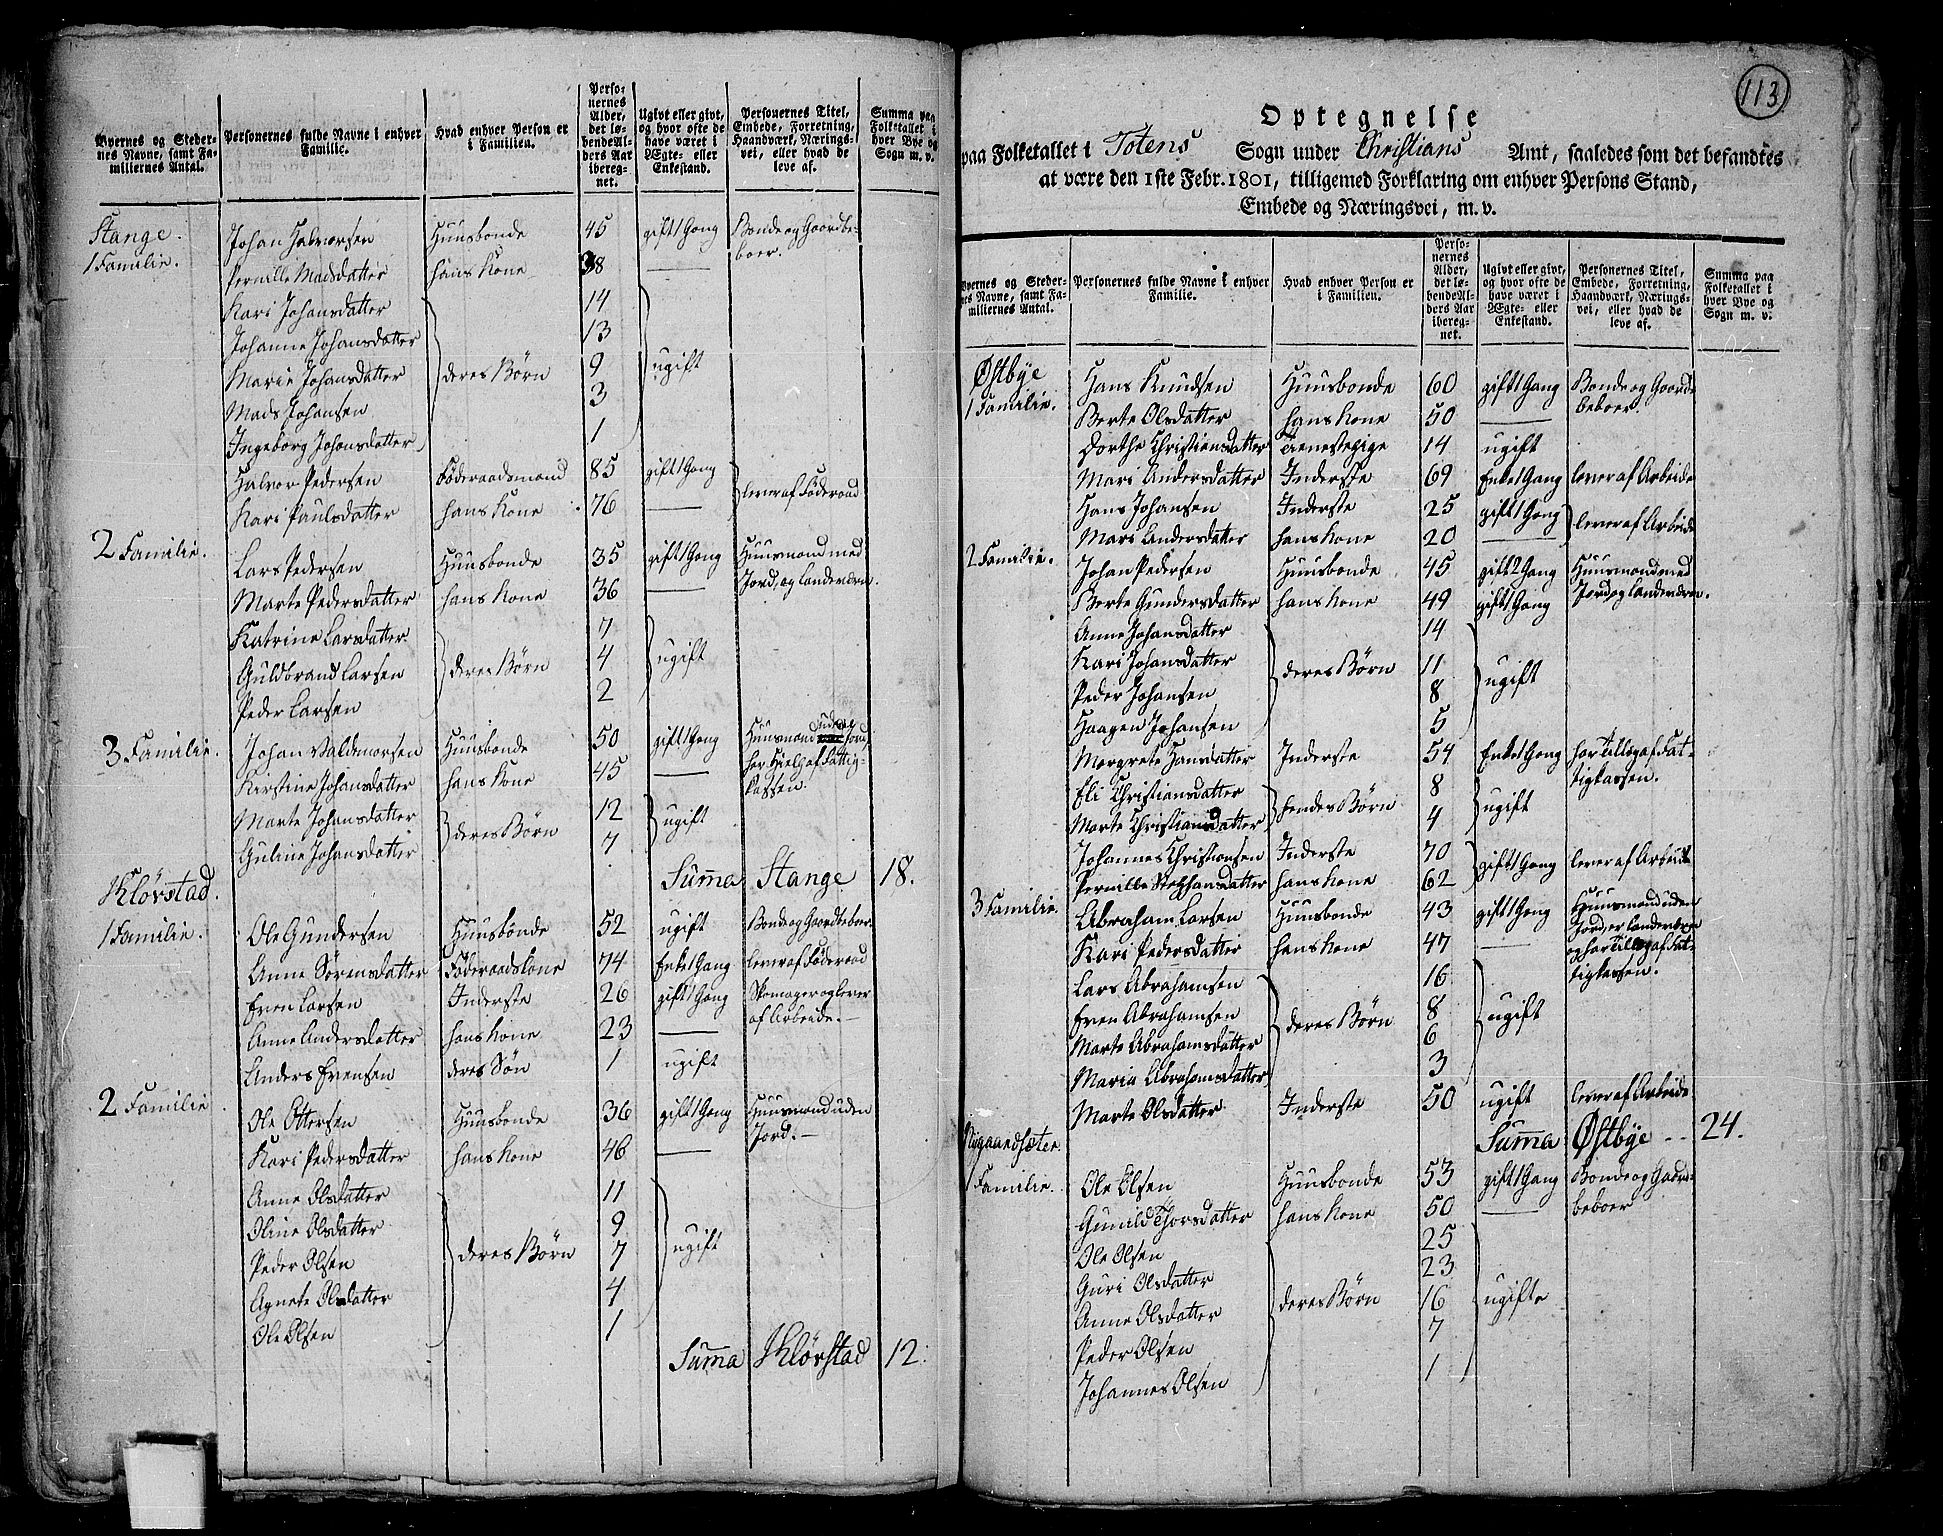 Byernes og Steder-nes Navne, samt Fa-miliernes Antal. | Personernes fulde Navne i enhver Familie. | Hvad enhver Person er i Familien. | Perso-nernes Alder, det lø-bende Al-ders Aar ibereg-net. | Ugivt eller givt, og hvor ofte de have været i Ægte- eller Enkestand. | Personernes Titel, Embede, Forretning, Haandværk, Nærings-vei, eller hvad de leve af. | Summa paa Folketallet i hver Bye og Sogn m. v.
Stange. 1 Familie. | Johan Halvorsen | Huusbonde | 45 | gift 1 Gang | Bonde og Gaardbe-boer.
Pernille Madsdatter | hans Kone | 38 | —
Kari Johansdatter | 14
Johanne Johansdatter | 13
Marie Johansdatter | deres Børn | 9 | ugift
Mads Johansen | 3
Ingeborg Johansdatter | 1
Halvor Pedersen | Föderaadsmand | 85 | gift 1 Gang | lever af Föderaad
Kari Paulsdatter | hans Kone | 76 | —
2 Familie. | Lars Pedersen | Huusbonde | 35 | gift 1 Gang | Huusmand med Jord, og Landværn.
Marte Pedersdatter | hans Kone | 36 | —
Katrine Larsdatter | 7
Guldbrand Larsen | deres Børn | 4 | ugift
Peder Larsen | 2
3 Familie. | Johan Valdemorsen | Huusbonde | 50 | gift 1 Gang | Huusmand uden Jord, har Hielp af Fattig-kassen.
Kirstine Johansdatter | hans Kone | 45 | —
Marte Johansdatter | deres Børn | 12 | ugift
Guline Johansdatter | 7
Summa Stange 18.
Klövstad.
1 Familie. | Ole Gundersen | Huusbonde | 52 | ugift | Bonde og Gaardbeboer.
Anne Sörensdatter | Föderaadskone | 74 | Enke 1 Gang | lever af Föderaad
Even Larsen | Inderste | 26 | gift 1 Gang | Skomager og lever af Arbeide.
Anne Andersdatter | hans Kone | 23 | —
Anders Evensen | deres Sön | 1 | ugift
2 Familie | Ole Ottersen | Huusbonde | 36 | gift 1 Gang | Huusmand uden Jord.
Kari Pedersdatter | hans Kone | 46 | —
Anne Olsdatter | 11
Oline Olsdatter | 9
Peder Olsen | deres Børn | 7 | ugift
Agnete Olsdatter | 4
Ole Olsen | 1
Summa Klövstad 12.
113
Optegnelse
paa Folketallet i Totens Sogn under Christians Amt, saaledes som det befandtes
at være den 1ste Febr. 1801, tilligemed Forklaring om enhver Persons Stand,
Embede og Næringsvei, m. v.
Byernes og Steder-nes Navne, samt Fa-miliernes Antal. | Personernes fulde Navne i enhver Familie. | Hvad enhver Person er i Familien. | Perso-nernes Alder, det lø-bende Al-ders Aar ibereg-net. | Ugivt eller givt, og hvor ofte de have været i Ægte- eller Enkestand. | Personernes Titel, Embede, Forretning, Haandværk, Nærings-vei, eller hvad de leve af. | Summa paa Folketallet i hver Bye og Sogn m. v.
Østbye 1 Familie. | Hans Knudsen | Huusbonde | 60 | gift 1 Gang | Bonde og Gaard-beboer
Berte Olsdatter | hans Kone | 50 | —
Dorthe Christiansdatter | Tienestepige | 14 | ugift
Mari Andersdatter | Inderste | 69 | Enke 1 Gang | lever af Arbeide
Hans Johansen | Inderste | 25 | gift 1 Gang | lever af Arbeide
Mari Andersdatter | hans Kone | 20 | —
2 Familie. | Johan Pedersen | Huusbonde | 45 | gift 2 Gang | Huusmand med Jord og Landværn.
Berte Gundersdatter | hans Kone | 49 | gift 1 Gang
Anne Johansdatter | 14
Kari Johansdatter | deres Børn | 11 | ugift
Peder Johansen | 8
Haagen Johansen | 5
Margrete Hansdatter | Inderste | 54 | Enke 1 Gang | har Tillæg af Fat-tigkassen.
Eli Christiansdatter | hendes Børn | 8 | ugift
Marte Christiansdatter | 4
Johannes Christiansen | Inderste | 70 | gift 1 Gang | lever af Arbeide
Pernille Stephansdatter | hans Kone | 62
3 Familie. | Abraham Larsen | Huusbonde | 43 | gift 1 Gang | Huusmand uden Jord, er Landværn og har Tillæg af Fat-tigkassen.
Kari Pedersdatter | hans Kone | 47 | —
Lars Abrahamsen | 16
Even Abrahamsen | deres Børn | 8 | ugift
Marte Abrahamsdatter | 6
Maria Abrahamsdatter | 3
Marte Olsdatter | Inderste | 50 | ugift | lever af Arbeide
Summa Østbye 24.
Nygaardsæter.
1 Familie. | Ole Olsen | Huusbonde | 53 | gift 1 Gang | Bonde og Gaard-beboer
Gunild Thorsdatter | hans Kone | 50 | —
Ole Olsen | 25
Guri Olsdatter | 23
Anne Olsdatter | deres Børn | 16 | ugifte
Peder Olsen | 7
Johannes Olsen | 1